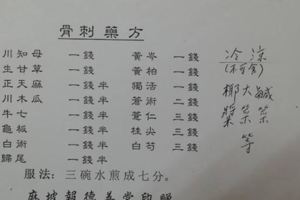 骨刺藥方
川知母 一錢
生甘草 一錢
正天麻 一錢半
川木瓜 一錢半
牛七 一錢半
龜板 一錢半
白術 一錢半
歸尾 一錢半
黃岑 一錢
黃柏 一錢
獨活 一錢半
蒼術 二錢
薏仁 三錢
桂尖 三錢
白芍 三錢
服法：三碗水煎成七分。
麻坡報德善堂印贈
冷涼
椰大鹹
漿菜菜
等